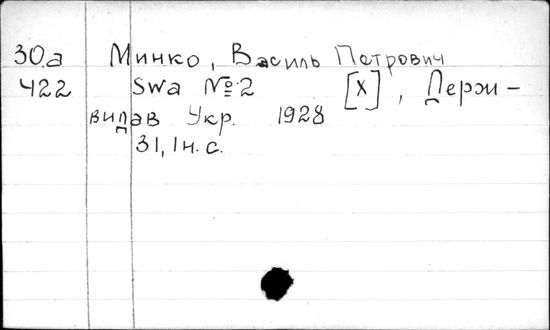 30.a Минко, Василь Петрович
422 Swa № 2 [X], Держ-
видав Укр. 1928
31, 1 н. с.